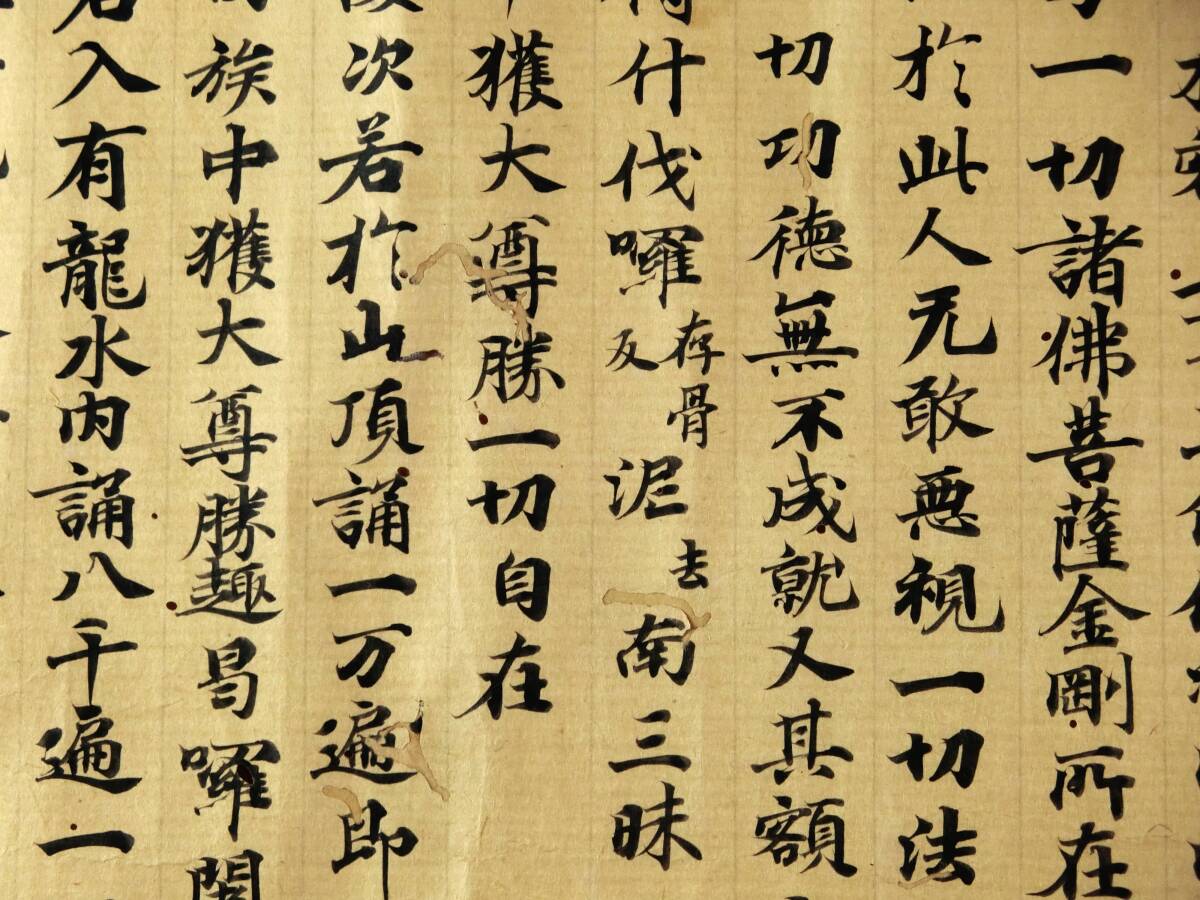 一切諸佛菩薩金剛所在
於此人无敢惡視一切法
切功德無不成就又其額
什伐囉存骨反泥去南三昧
獲大尊勝一切自在
次若於山頂誦一万遍即
族中獲大尊勝趣曷囉闍
入有龍水內誦八千遍一